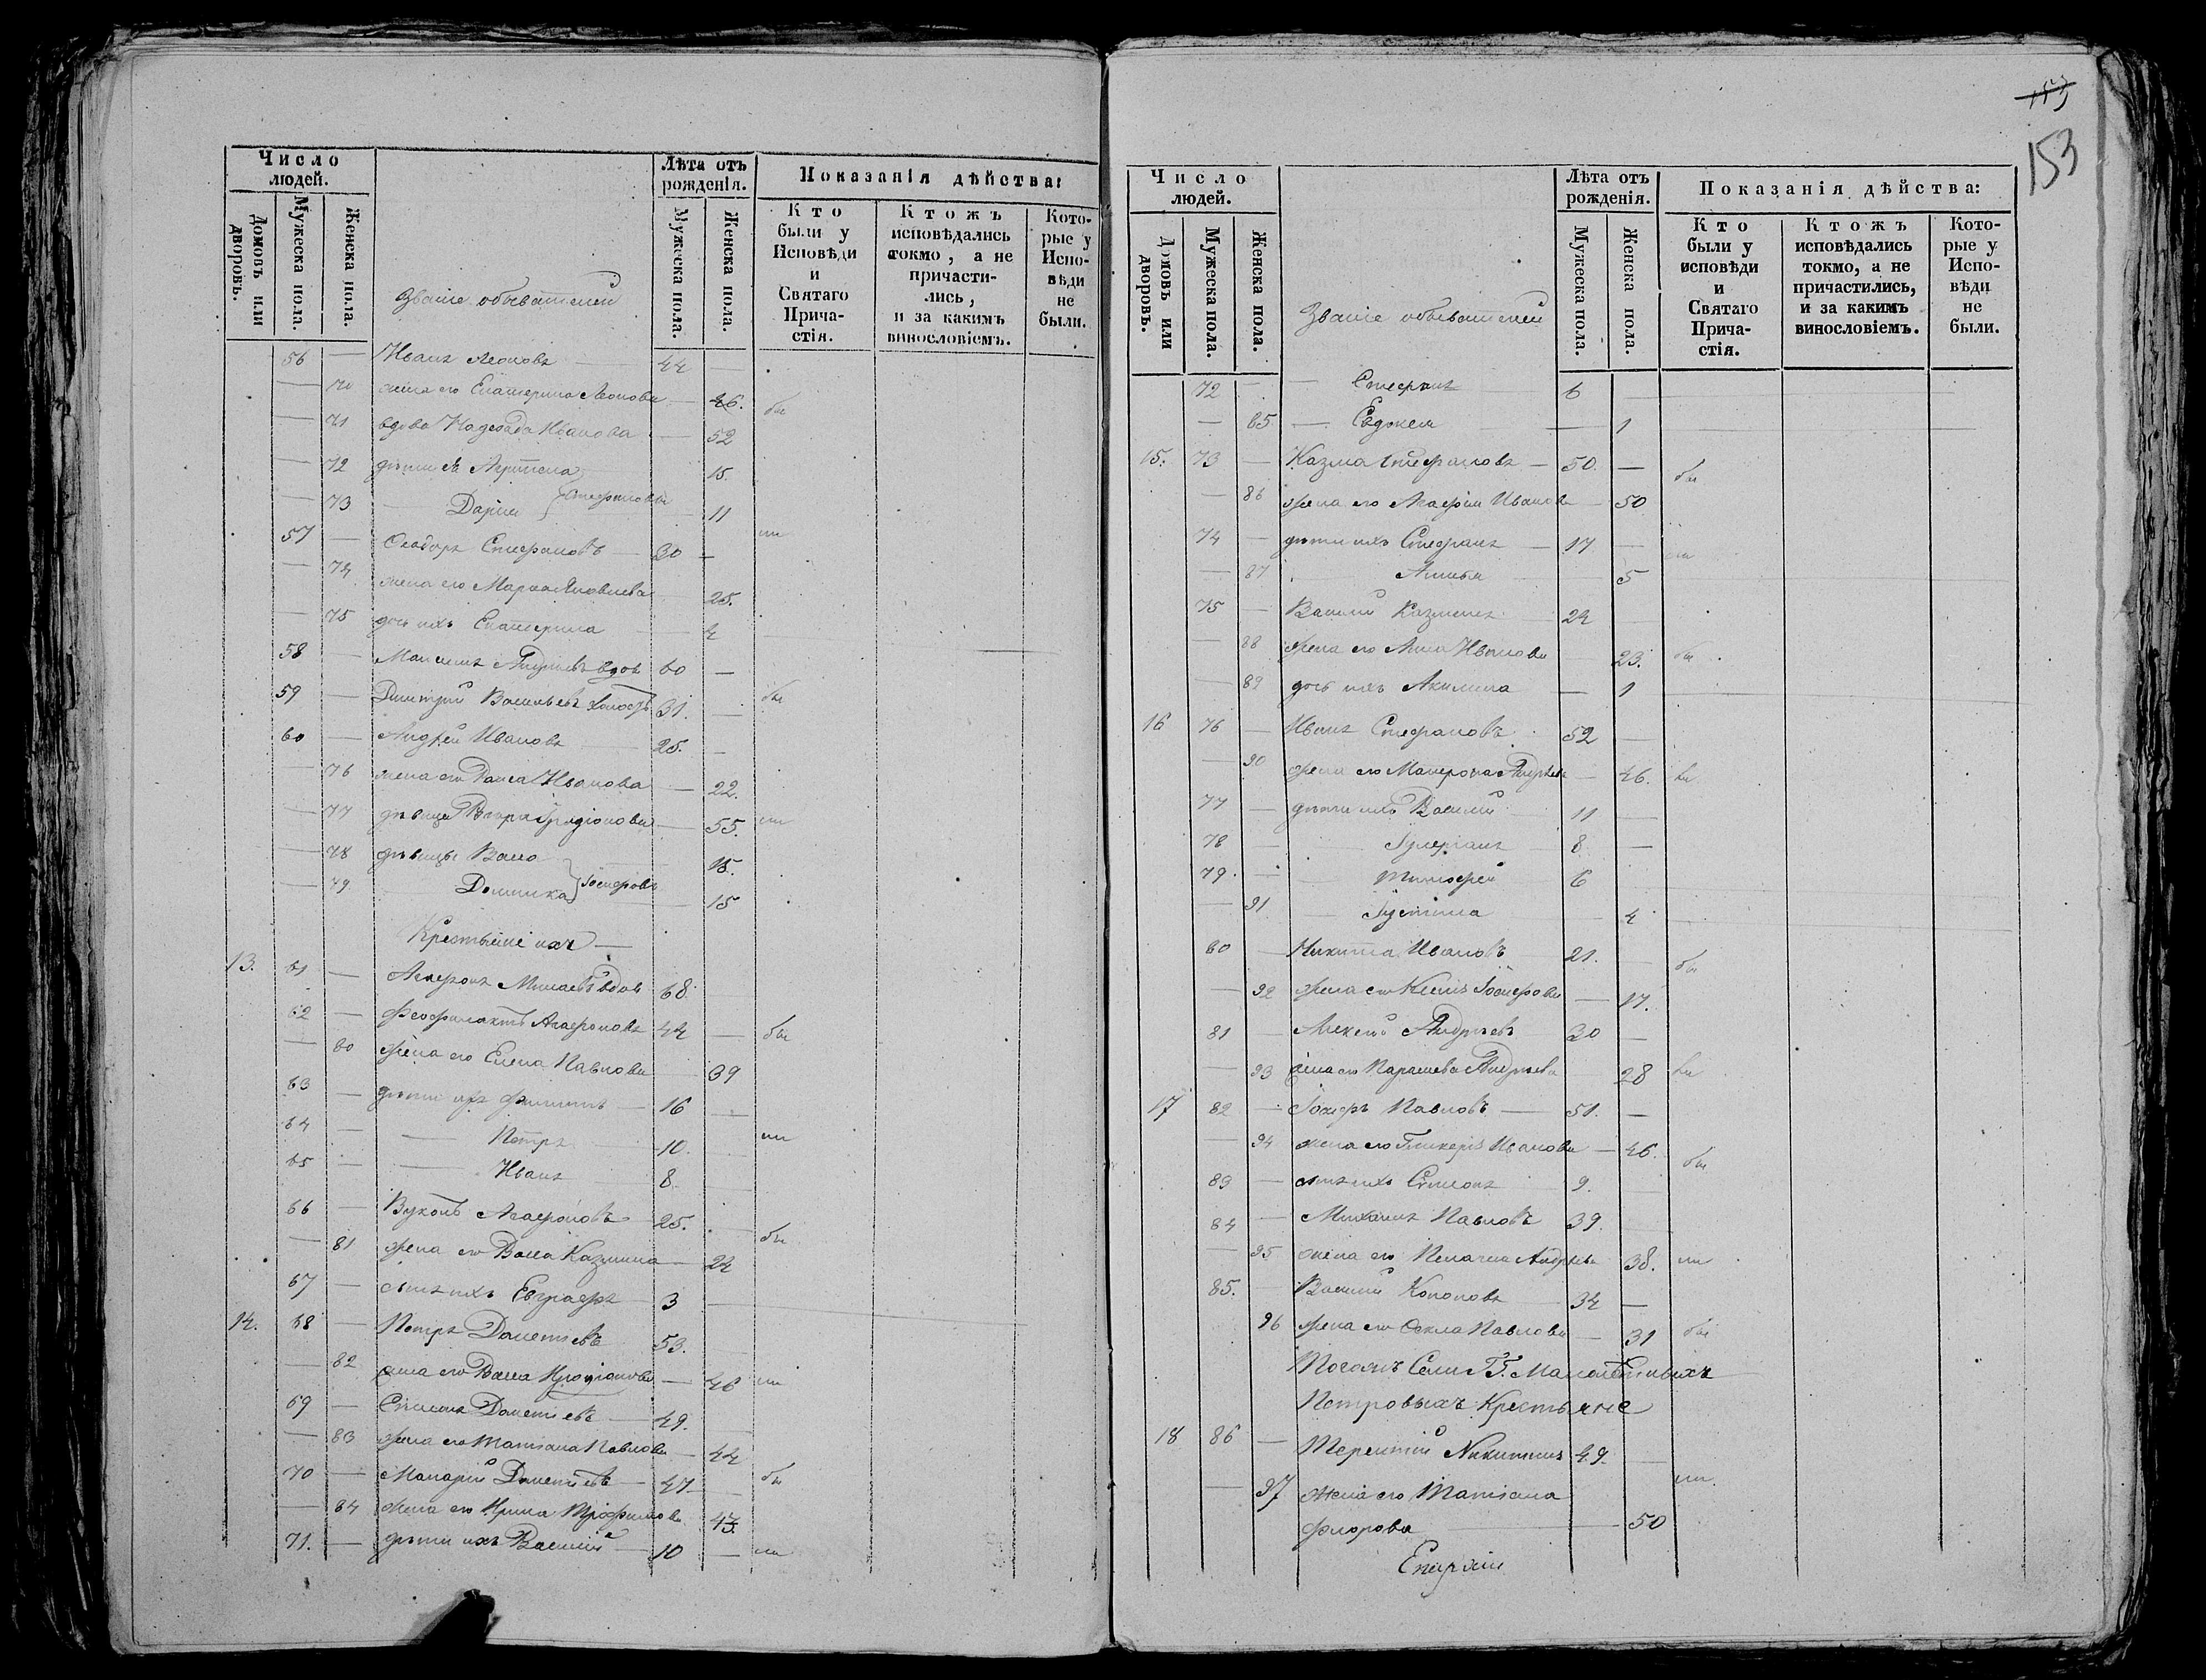 Число людей.
Домовъ или дворовъ.
Мужеска пола.
Женска пола.
Званіе обывателей
Лѣта отъ рожденія.
Мужеска пола.
Женска пола.
Показанія дѣйства:
Кто были у Исповѣди и Святаго Прича-стія.
Ктожъ исповѣдались токмо, а не причасти-лись, и за какимъ винословіемъ.
Кото-рые у Испо-вѣди не были.
56 — Иванъ Леоновъ 44 —
— 70 жена его Екатерина Леонова — 46. бы
— 71 вдова Надежда Иванова — 52
— 72 дѣти ея 15.
— 73 Дарья 11
57 — Ѳеодоръ Стефановъ 30 —
— 74 жена его Марѳа Яковлева 25.
— 75 дочь ихъ Екатерина — 4
58 — Андреевъ вдов 60 —
59 — Димитрій Васильевъ холостъ 31. — бы
60 — Андрей Ивановъ 25. —
— 76 жена его Иванова — 22.
— 77 дѣвица — 55.
— 78 дѣвицы Васса 18.
— 79 Домника Іосифовы — 15
Крестьяне ихъ —
13. 61 — Агафонъ вдов 68.
62 — Феофилактъ Агафоновъ 44 — бы
— 80 жена его Елена Павлова 39
63 — дѣти ихъ Филиппъ — 16 —
64 — Петръ 10.
65 — Иванъ 8.
66 — Вуколъ Агафоновъ 25. — бы
— 81 жена его Васса Казмина — 24
67 — сынъ ихъ Евграфъ 3 —
14. 68 — Петръ Дометіевъ 53.
— 82 жена его Васса — 46
69 — Симонъ Дометіевъ — 49.
— 83 жена его Татіана Павлова — 44
70 — Макарій Дометіевъ — 47. бы
— 84 жена его Ирина Трофимова 43.
71. — дѣти ихъ Василій — 10 —
153
153
Число людей.
Домовъ или дворовъ.
Мужеска пола.
Женска пола.
Званіе обывателей
Лѣта отъ рожденія.
Мужеска пола.
Женска пола.
Показанія дѣйства:
Кто были у исповѣди и Святаго Прича-стія.
Ктожъ исповѣдались токмо, а не причастились, и за какимъ винословіемъ.
Кото-рые у Испо-вѣди не были.
72 — Стефанъ 6
— 85 — Евдокея — 1
15. 73 — Казма Стефановъ — 50. — бы
— 86 жена его Агафія Иванова — 50
74 — дѣти ихъ Стефанъ — 17 —
— 87 5
75 — Василій Казминъ 24 —
— 88 жена его Анна Иванова 23. бы
— 89 дочь ихъ Акилина — 1
16 76 — Иванъ Стефановъ 52 —
— 90 жена его Матрона Андреева — 46.
77 — дѣти ихъ Василій 11 —
78 — 8 —
79. — Тимофей 6
— 91 — Іустина 4
80 — Никита Ивановъ 21. — бы
— 92 жена его Іосифова — 17.
81 — Алексѣй Андреевъ 30 —
— 93 жена его Параскева Андреева 28
17 82 — Іосифъ Павловъ — 51. —
— 94 жена его Гликерія Иванова — 46. бы
83 — сынъ ихъ Симонъ 9. —
84 — Михаилъ Павловъ 39.
— 95 жена его Пелагея Андреева 38.
85. — Василій Кононовъ 34 —
96 жена его Ѳекла Павлова — 31 бы
Села ГГ. Малолѣтныхъ
Петровыхъ Крестьяне
18 86 — Терентій Никитинъ 49. —
— 97 жена его Татіана
Флорова — 50
Епархіи